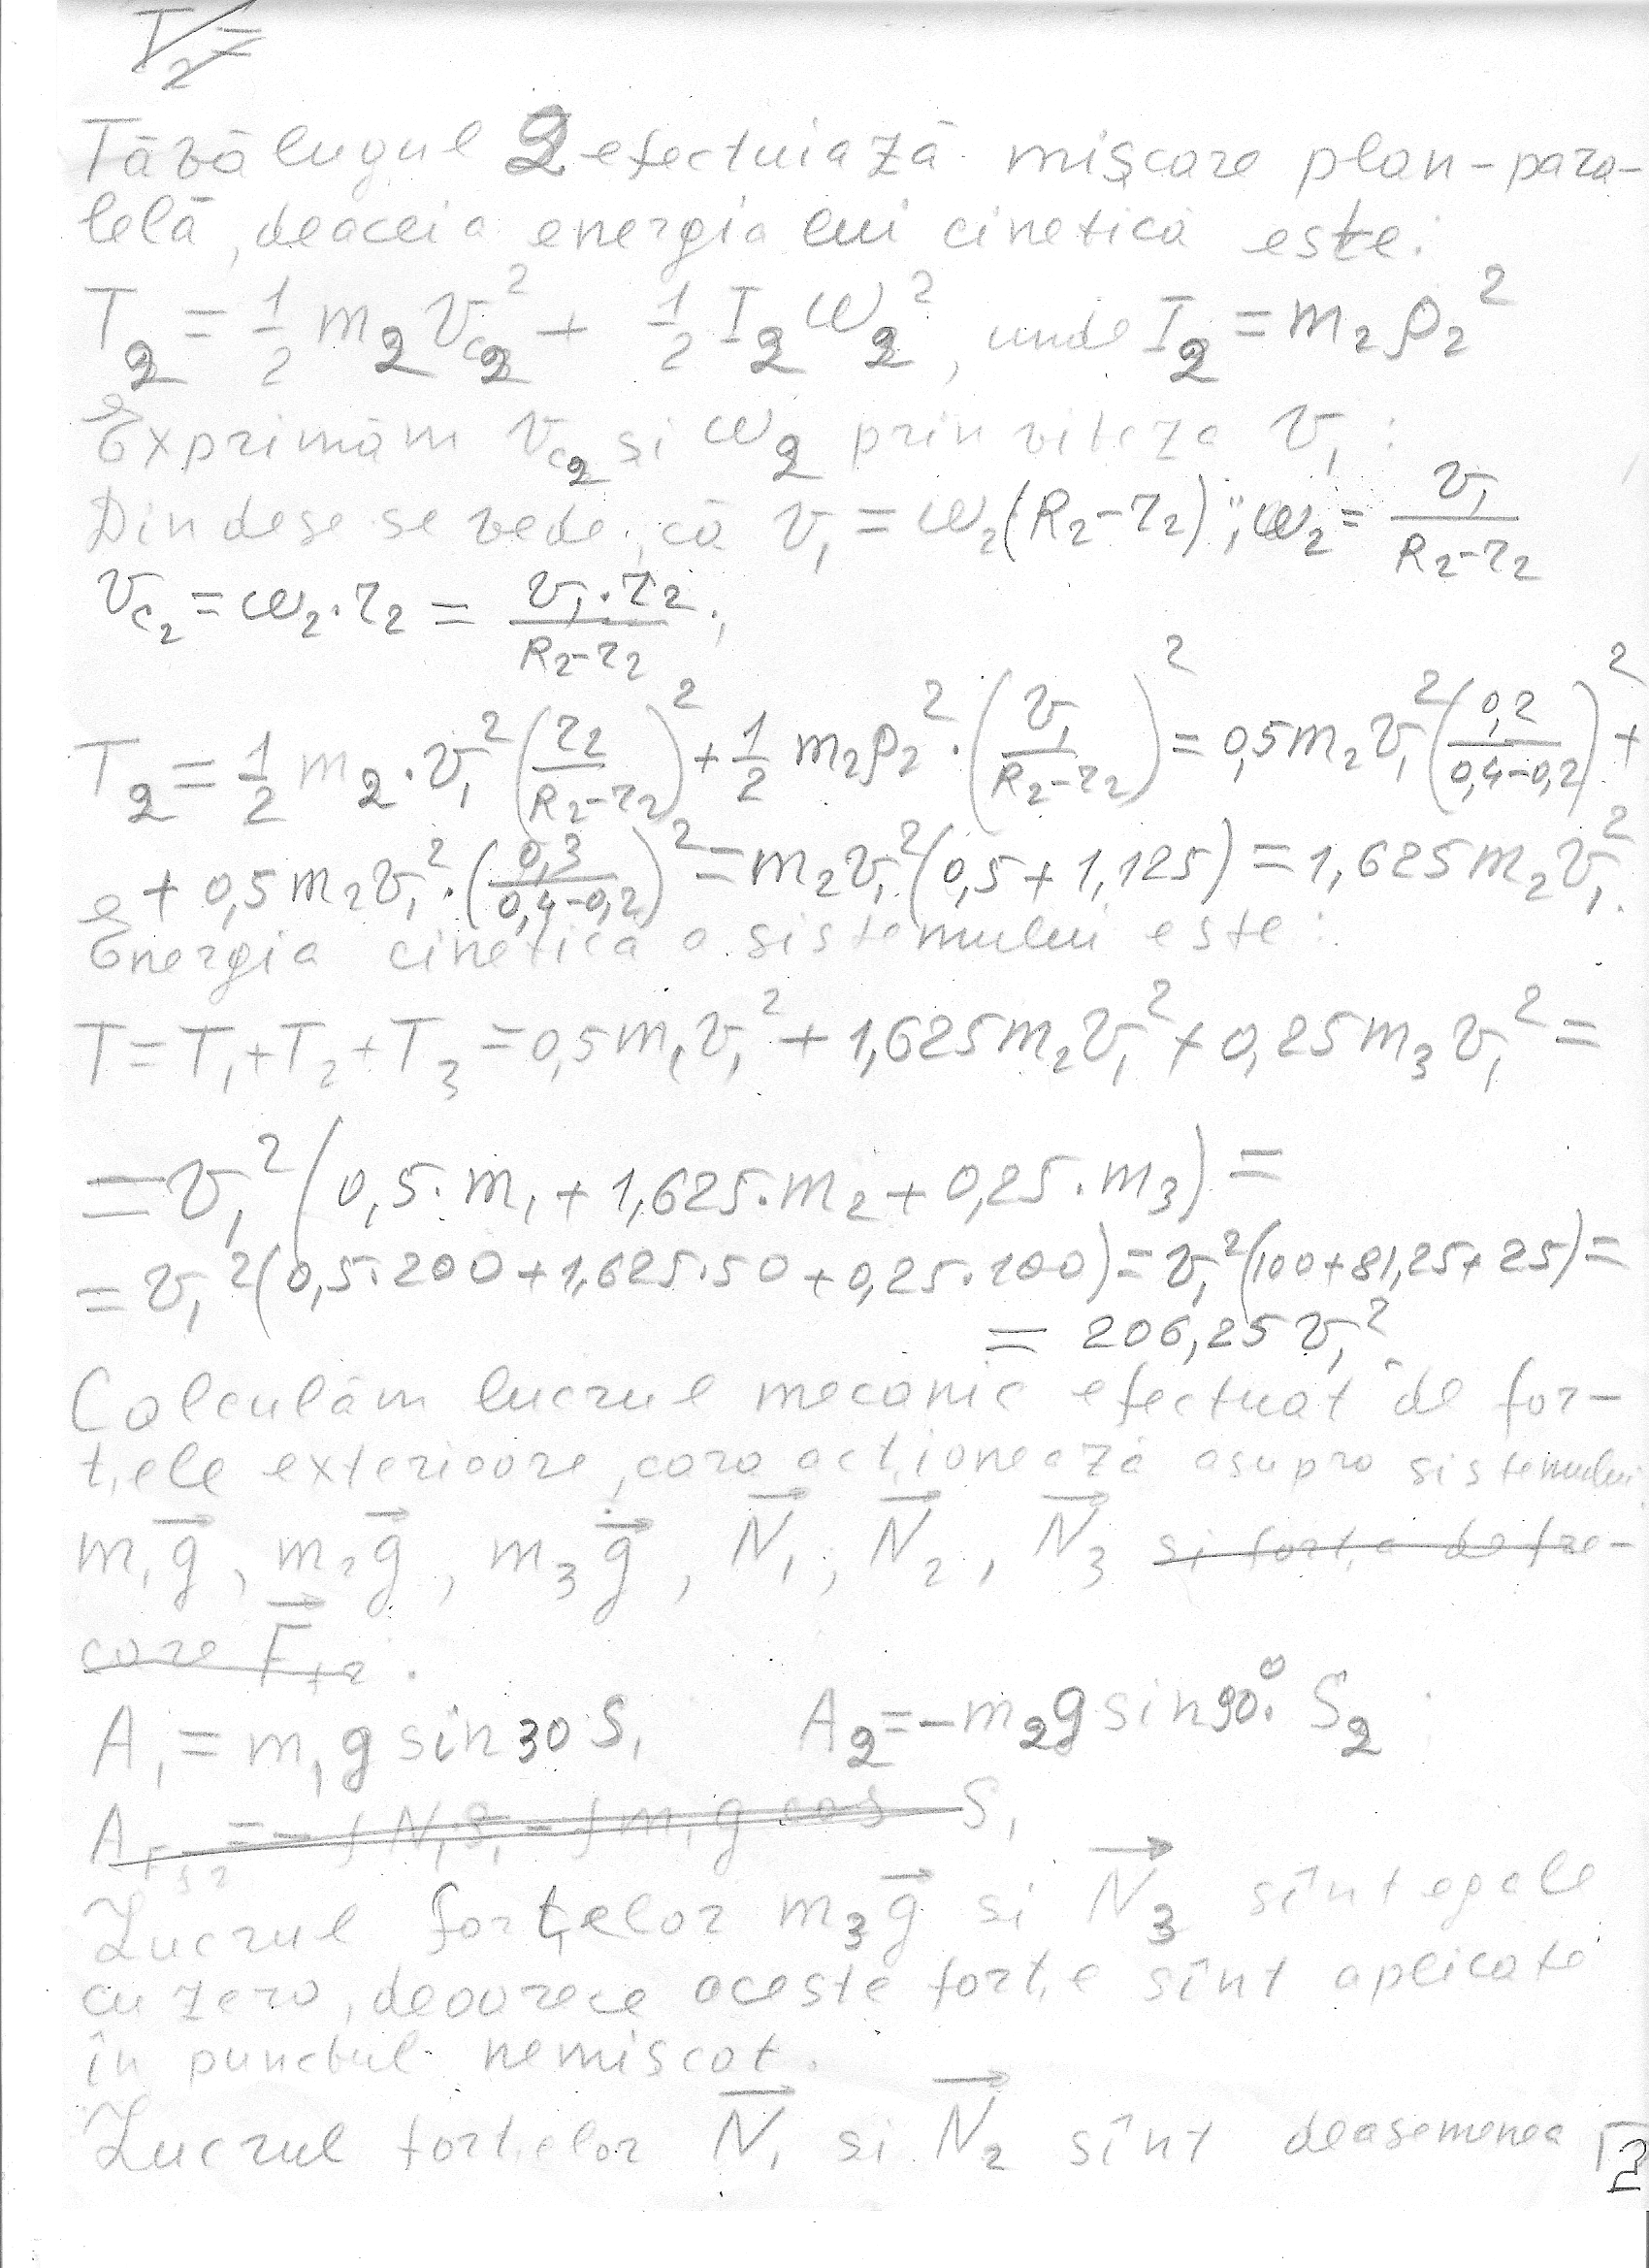 T₂=
Tăvălugul 2 efectuiază mișcare plan-para-
lelă, deaceia energia lui cinetică este:
T₂ = 1/2 m₂ v_c₂² + 1/2 I₂ ω₂², unde I₂ = m₂ρ₂²
Exprimăm v_c₂ și ω₂ prin viteza v₁:
Din dese se vede, că v₁ = ω₂(R₂-r₂); ω₂ = v₁/(R₂-r₂)
v_c₂ = ω₂·r₂ = v₁·r₂/(R₂-r₂);
T₂ = 1/2 m₂·v₁²(r₂/(R₂-r₂))² + 1/2 m₂ρ₂²·(v₁/(R₂-r₂))² = 0,5m₂v₁²(0,2/(0,4-0,2))² +
+ 0,5m₂v₁²·(0,3/(0,4-0,2))² = m₂v₁²(0,5+1,125) = 1,625m₂v₁².
Energia cinetică a sistemului este:
T = T₁+T₂+T₃ = 0,5m₁v₁² + 1,625m₂v₁² + 0,25m₃v₁² =
= v₁²(0,5·m₁ + 1,625·m₂ + 0,25·m₃) =
= v₁²(0,5·200+1,625·50+0,25·100) = v₁²(100+81,25+25) =
= 206,25v₁²
Calculăm lucrul mecanic efectuat de for-
țele exterioare, care acționează asupra sistemului
m₁g⃗, m₂g⃗, m₃g⃗, N⃗₁, N⃗₂, N⃗₃ și forța de fre-
care F⃗_fr.
A₁ = m₁g sin30 S₁ A₂ = -m₂g sin90° S₂
A_Ffr = -fN₁S₁ = fm₁g cos S₁
Lucrul forțelor m₃g⃗ si N⃗₃ sînt egale
cu zero, deoarece aceste forțe sînt aplicate
în punctul nemișcat.
Lucrul forțelor N⃗₁ si N⃗₂ sînt deasemenea